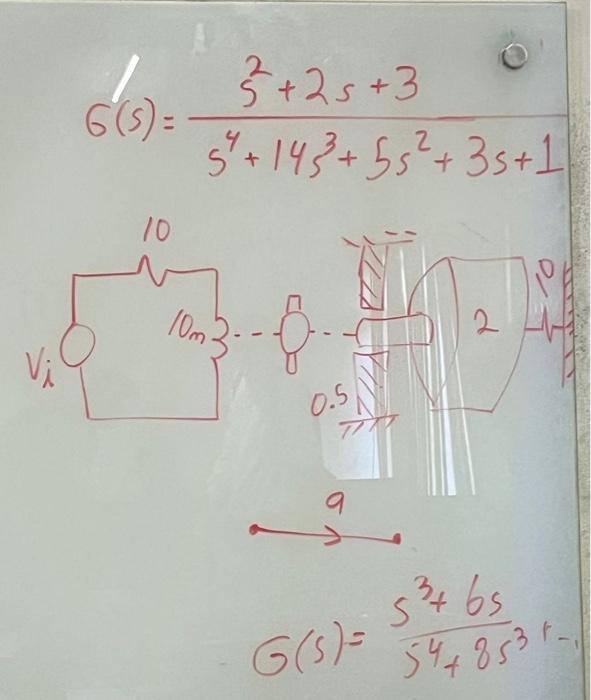 G(s) = (s² + 2s + 3) / (s⁴ + 14s³ + 5s² + 3s + 1)
10
10m
Vi
10
2
0.5
a
G(s) = (s³ + 6s) / (s⁴ + 8s³ + -.